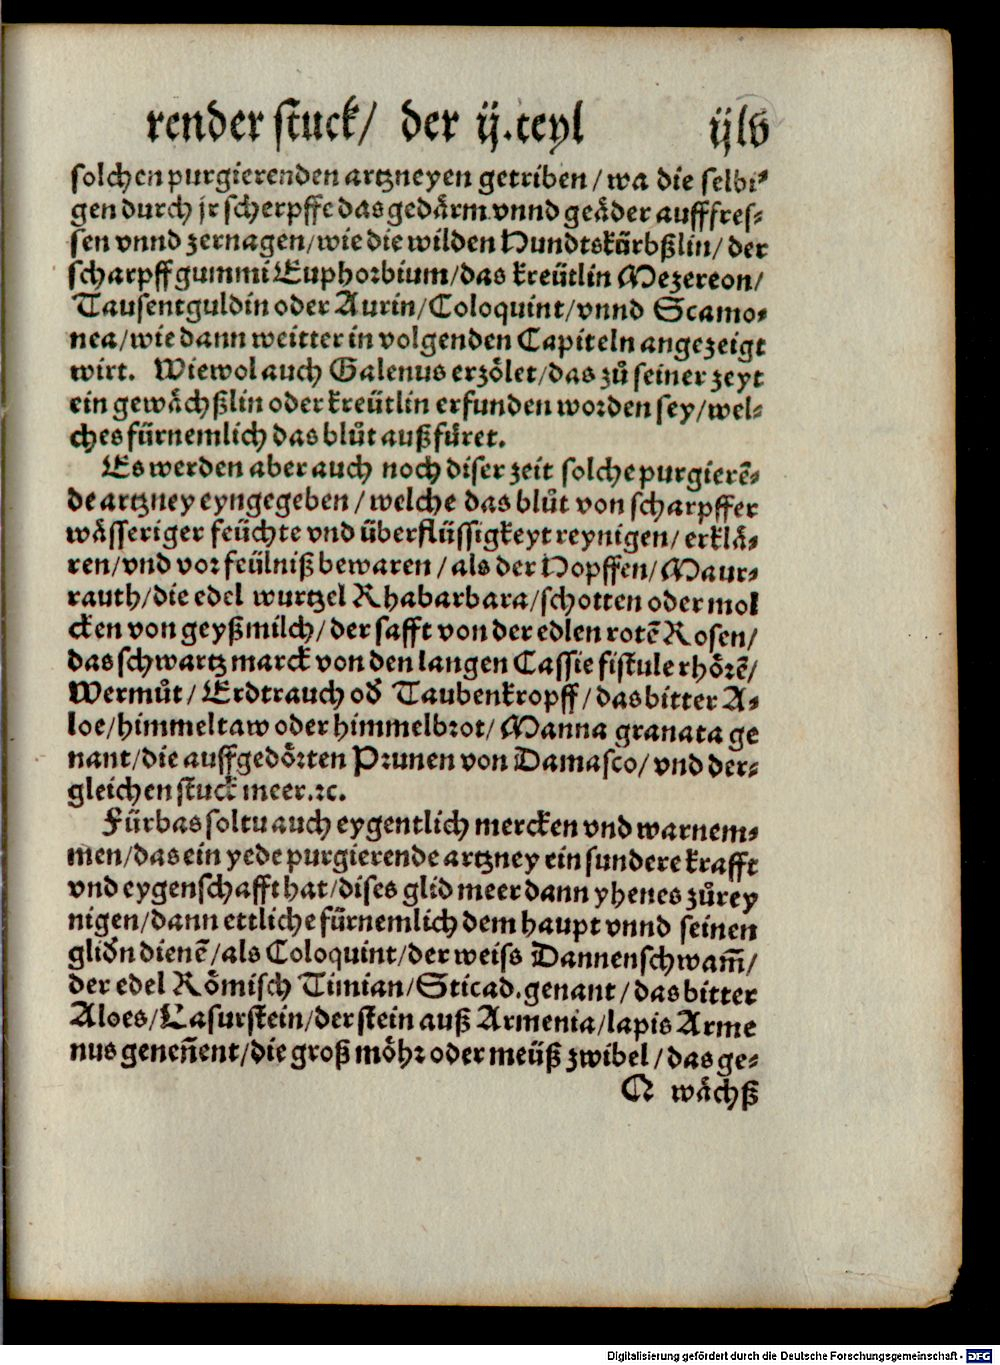 render stuck/ der ij. teyl ijlv
solchen purgierenden artzneyen getriben/wa die selbi⸗
gen durch jr scherpffe das gedärm vnnd geäder aufffres⸗
sen vnnd zernagen/wie die wilden Hundtskürbßlin/der
scharpff gummi Euphorbium/das kreütlin Mezereon/
Tausentguldin oder Aurin/Coloquint/vnnd Scamo⸗
nea/wie dann weitter in volgenden Capiteln angezeigt
wirt. Wiewol auch Galenus erzölet/das zů seiner zeyt
ein gewächßlin oder kreütlin erfunden worden sey/wel⸗
ches fürnemlich das blůt außfüret.
Es werden aber auch noch diser zeit solche purgierē⸗
de artzney eyngegeben/welche das blůt von scharpffer
wässeriger feüchte vnd überflüssigkeyt reynigen/erklä⸗
ren/vnd vor feülniß bewaren/als der Hopffen/Maur⸗
rauth/die edel wurtzel Rhabarbara/schotten oder mol
cken von geyßmilch/der safft von der edlen rotē Rosen/
das schwartz marck von den langen Cassie fistule rhörē/
Wermůt/Erdtrauch oď Taubenkropff/das bitter A⸗
loe/himmeltaw oder himmelbrot/Manna granata ge
nant/die auffgedörten Prunen von Damasco/vnd der⸗
gleichen stuck meer.ꝛc.
Fürbas soltu auch eygentlich mercken vnd warnem⸗
men/das ein yede purgierende artzney ein sundere krafft
vnd eygenschafft hat/dises glid meer dann yhenes zů rey
nigen/dann ettliche fürnemlich dem haupt vnnd seinen
gliďn dienē/als Coloquint/der weiss Dannenschwam̄/
der edel Römisch Timian/Sticad.genant/das bitter
Aloes/Lasurstein/der stein auß Armenia/lapis Arme
nus genen̄ent/die groß möhr oder meüß zwibel/das ge⸗
Q wächß
Digitalisierung gefördert durch die Deutsche Forschungsgemeinschaft - DFG